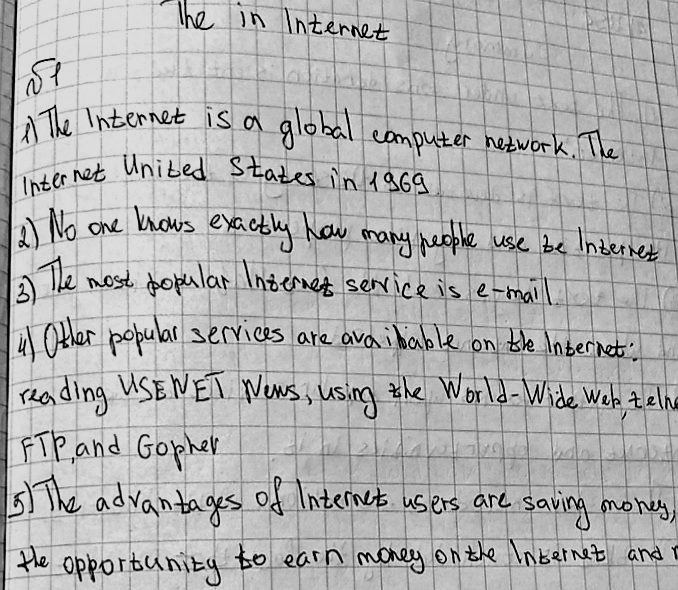 The in Internet
№1
1) The Internet is a global computer network. The
Internet United States in 1969
2) No one knows exactly how many peophe use be Internet
3) The most popular Internet service is e-mail.
4) Other popular services are avaihable on the Internet:
reading USENET News, using the World-Wide Web, telne
FTP, and Gopher
5) The advantages of Internet users are saving money,
the opportunity to earn money on the Internet and